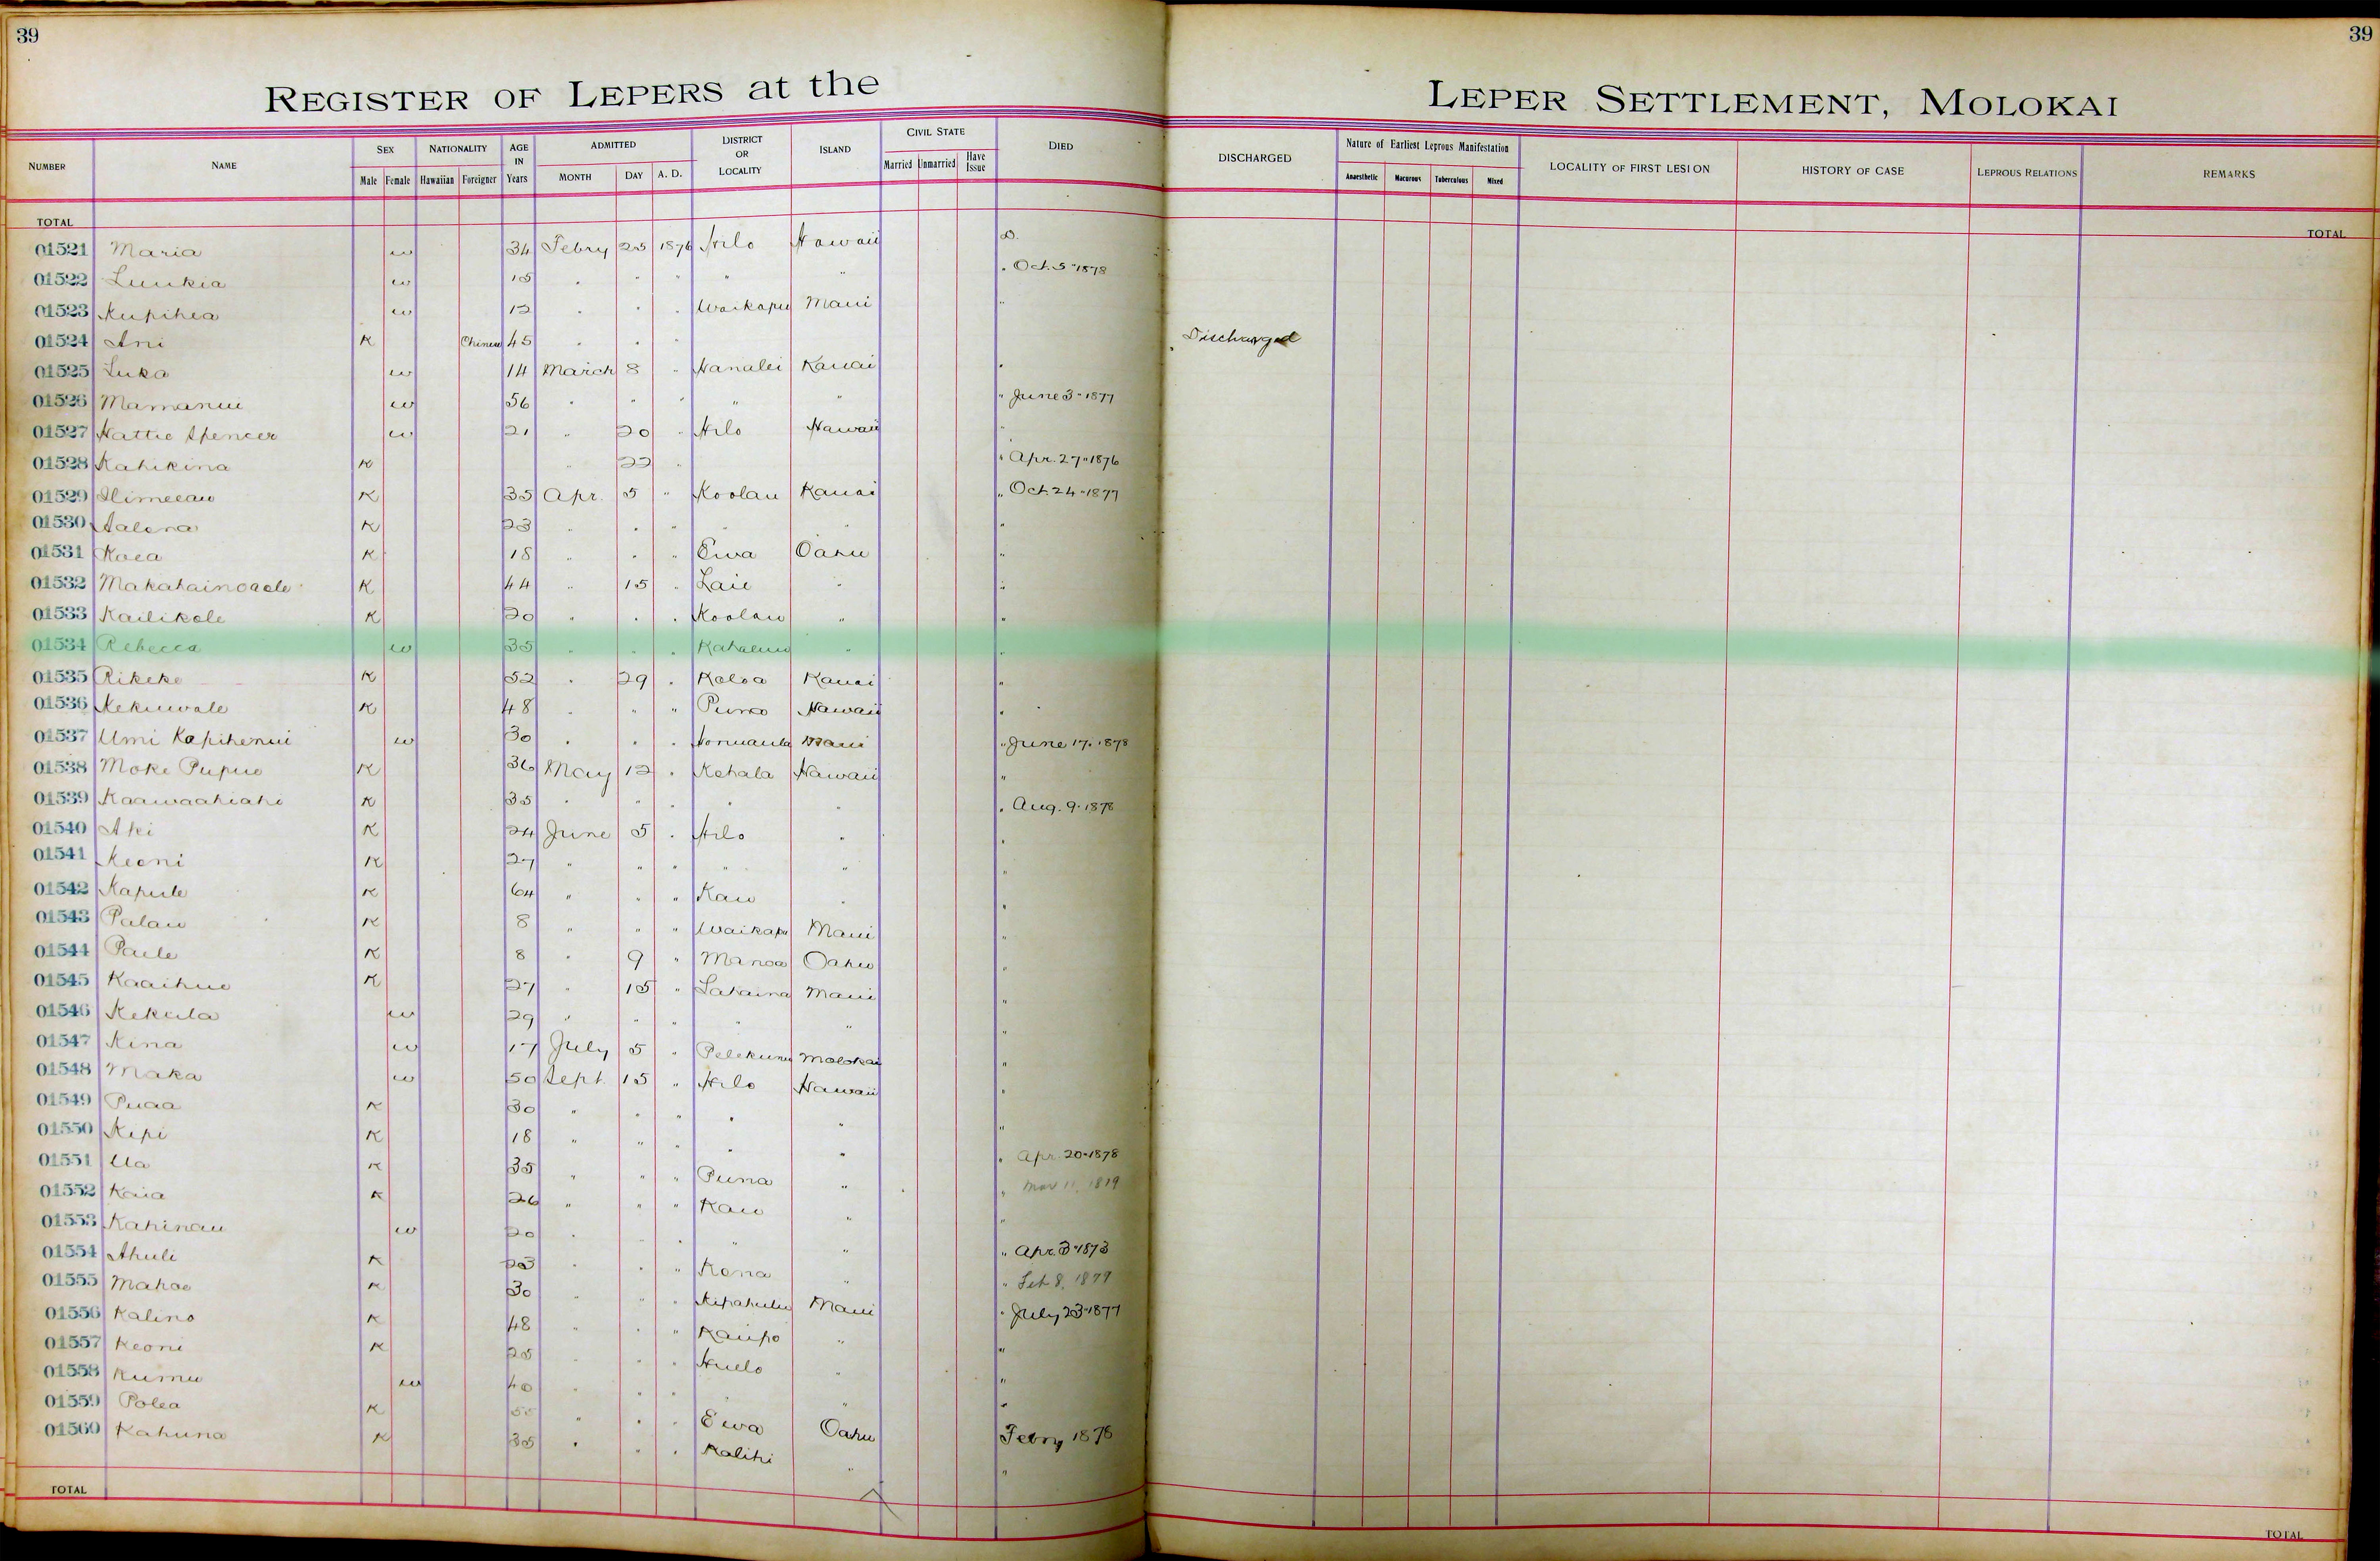 39 39
REGISTER OF LEPERS at the LEPER SETTLEMENT, MOLOKAI
NUMBER NAME SEX Male Female NATIONALITY Hawaiian Foreigner AGE IN Years ADMITTED MONTH DAY A. D. DISTRICT OR LOCALITY ISLAND CIVIL STATE Married Unmarried Have Issue DIED DISCHARGED Nature of Earliest Leprous Manifestation Anaesthetic Macurous Tuberculous Mixed LOCALITY OF FIRST LESION HISTORY OF CASE LEPROUS RELATIONS REMARKS
TOTAL TOTAL
01521 Maria w 34 Febry 25 1876 Hilo Hawaii D.
01522 Luukia w 15 " " " " " " Oct. 5 "1878
01523 Kupihea w 12 " " " Waikapu Maui "
01524 Ani K Chinese 45 " " " Discharged
01525 Luka w 14 March 8 " Hanalei Kauai "
01526 Mamanui w 56 " " " " " " June 3 - 1877
01527 Hattie Spencer w 21 " 20 " Hilo Hawaii "
01528 Kahikina K " 22 " " Apr. 27 "1876
01529 K 35 Apr. 5 " Koolau Kauai " Oct. 24 - 1877
01530 Aalona K 23 " " " " " "
01531 Koea K 18 " " " Ewa Oahu "
01532 Makahainoaole K 44 " 15 " Laie " "
01533 Kailikole K 20 " " " Koolau " "
01534 Rebecca w 35 " " " Kahaluu " "
01535 Rikeke K 52 " 29 " Koloa Kauai "
01536 Kekuwale K 48 " " " Puna Hawaii "
01537 Umi Kapihenui w 30 " " " Honuaula Maui " June 17. 1878
01538 Moke Pupuo K 36 May 12 " Kohala Hawaii "
01539 Kaawaahiahi K 35 " " " " " " Aug. 9. 1878
01540 Aki K 24 June 5 " Hilo " "
01541 Keoni K 27 " " " " " "
01542 Kapule K 64 " " " Kau " "
01543 Palau K 8 " " " Waikapu Maui "
01544 Paele K 8 " 9 " Manoa Oahu "
01545 Kaaihue K 27 " 15 " Lahaina Maui "
01546 Kekula w 29 " " " " " "
01547 Kina w 17 July 5 " Pelekunu Molokai "
01548 Maka w 50 Sept. 15 " Hilo Hawaii "
01549 Puaa K 30 " " " " " "
01550 Kepi K 18 " " " " " " Apr. 20 - 1878
01551 Ua K 35 " " " Puna " " Mar 11, 1879
01552 Kaia K 26 " " " Kau " "
01553 Kahinau w 20 " " " " " " Apr. 3 - 1873
01554 Ahuli K 23 " " " Kona " " Feb 8, 1879
01555 Mahoe K 30 " " " Kipahulu Maui " July 23 - 1877
01556 Kalino K 48 " " " Kaupo " "
01557 Keoni K 25 " " " Huelo " "
01558 Kumu w 40 " " " " "
01559 Polea K 55 " " " Ewa Oahu Febry 1878
01560 Kahuna K 35 " " " Kalihi " "
TOTAL TOTAL